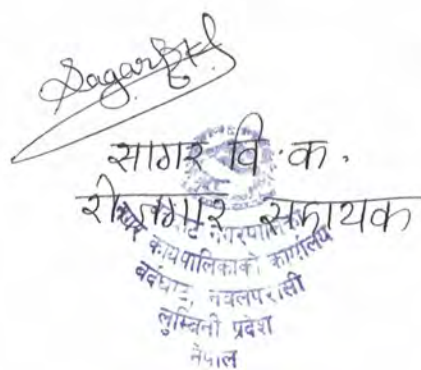 सागर वि.क.
रोजगार सहायक
नगर कार्यपालिकाको कार्यालय
बर्दघाट, नवलपरासी
लुम्बिनी प्रदेश
नेपाल